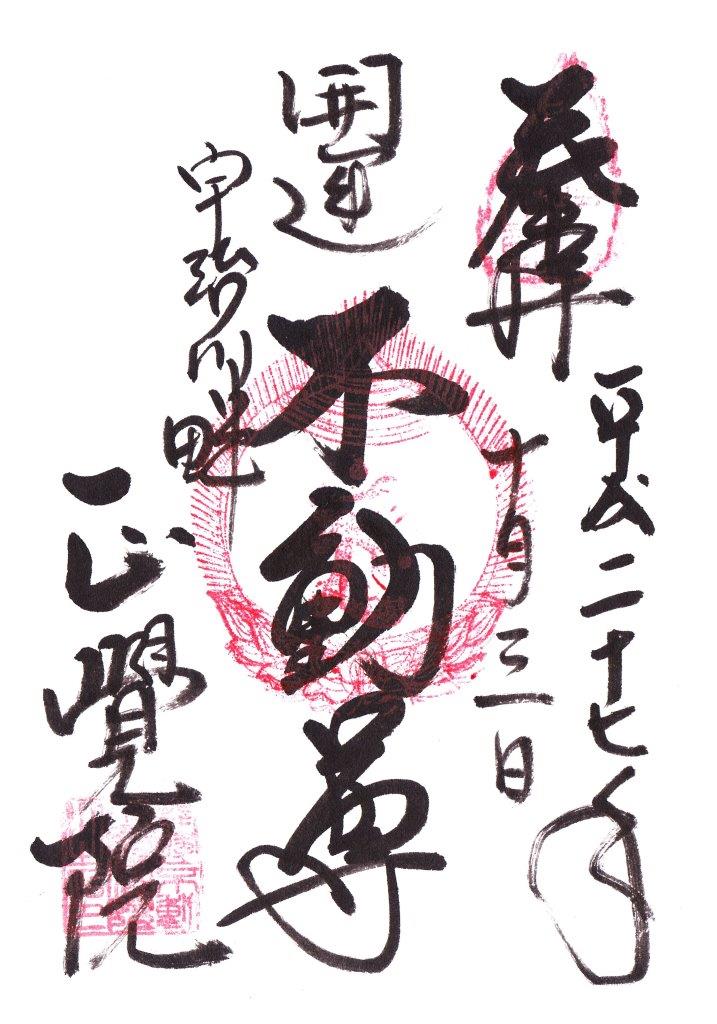 奉拝
平成二十七年
十月三日
開運
不動尊
宇治川畔
正覺院